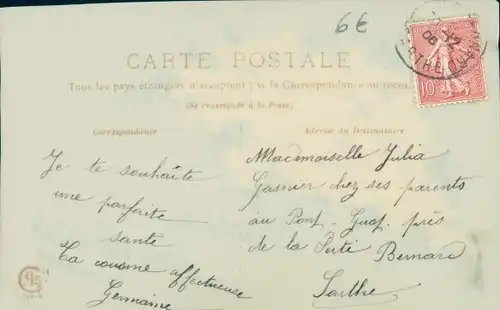 6€
CARTE POSTALE
Tous les pays étrangers d'acceptent pas la Correspondance au recto
(Se renseigner à la Poste)
Correspondance
Adresse du Destinataire
10
Je te souhaite
une parfaite
santé
Ta cousine affectueuse
Germaine
Mademoiselle Julia
Gasnier chez ses parents
au Pont-Guot près
de la Ferté Bernard
Sarthe